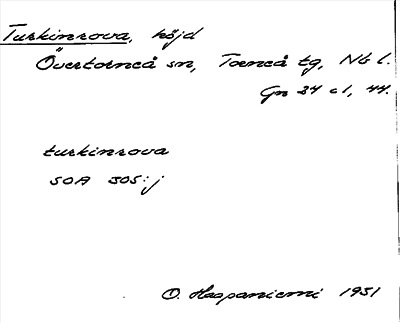 Turkinrova, höjd
Övertorneå sn, Torneå tg, Nb l.
Gn 34 c1, 44.
turkinrova
SOA 305:j
O. Haapaniemi 1931